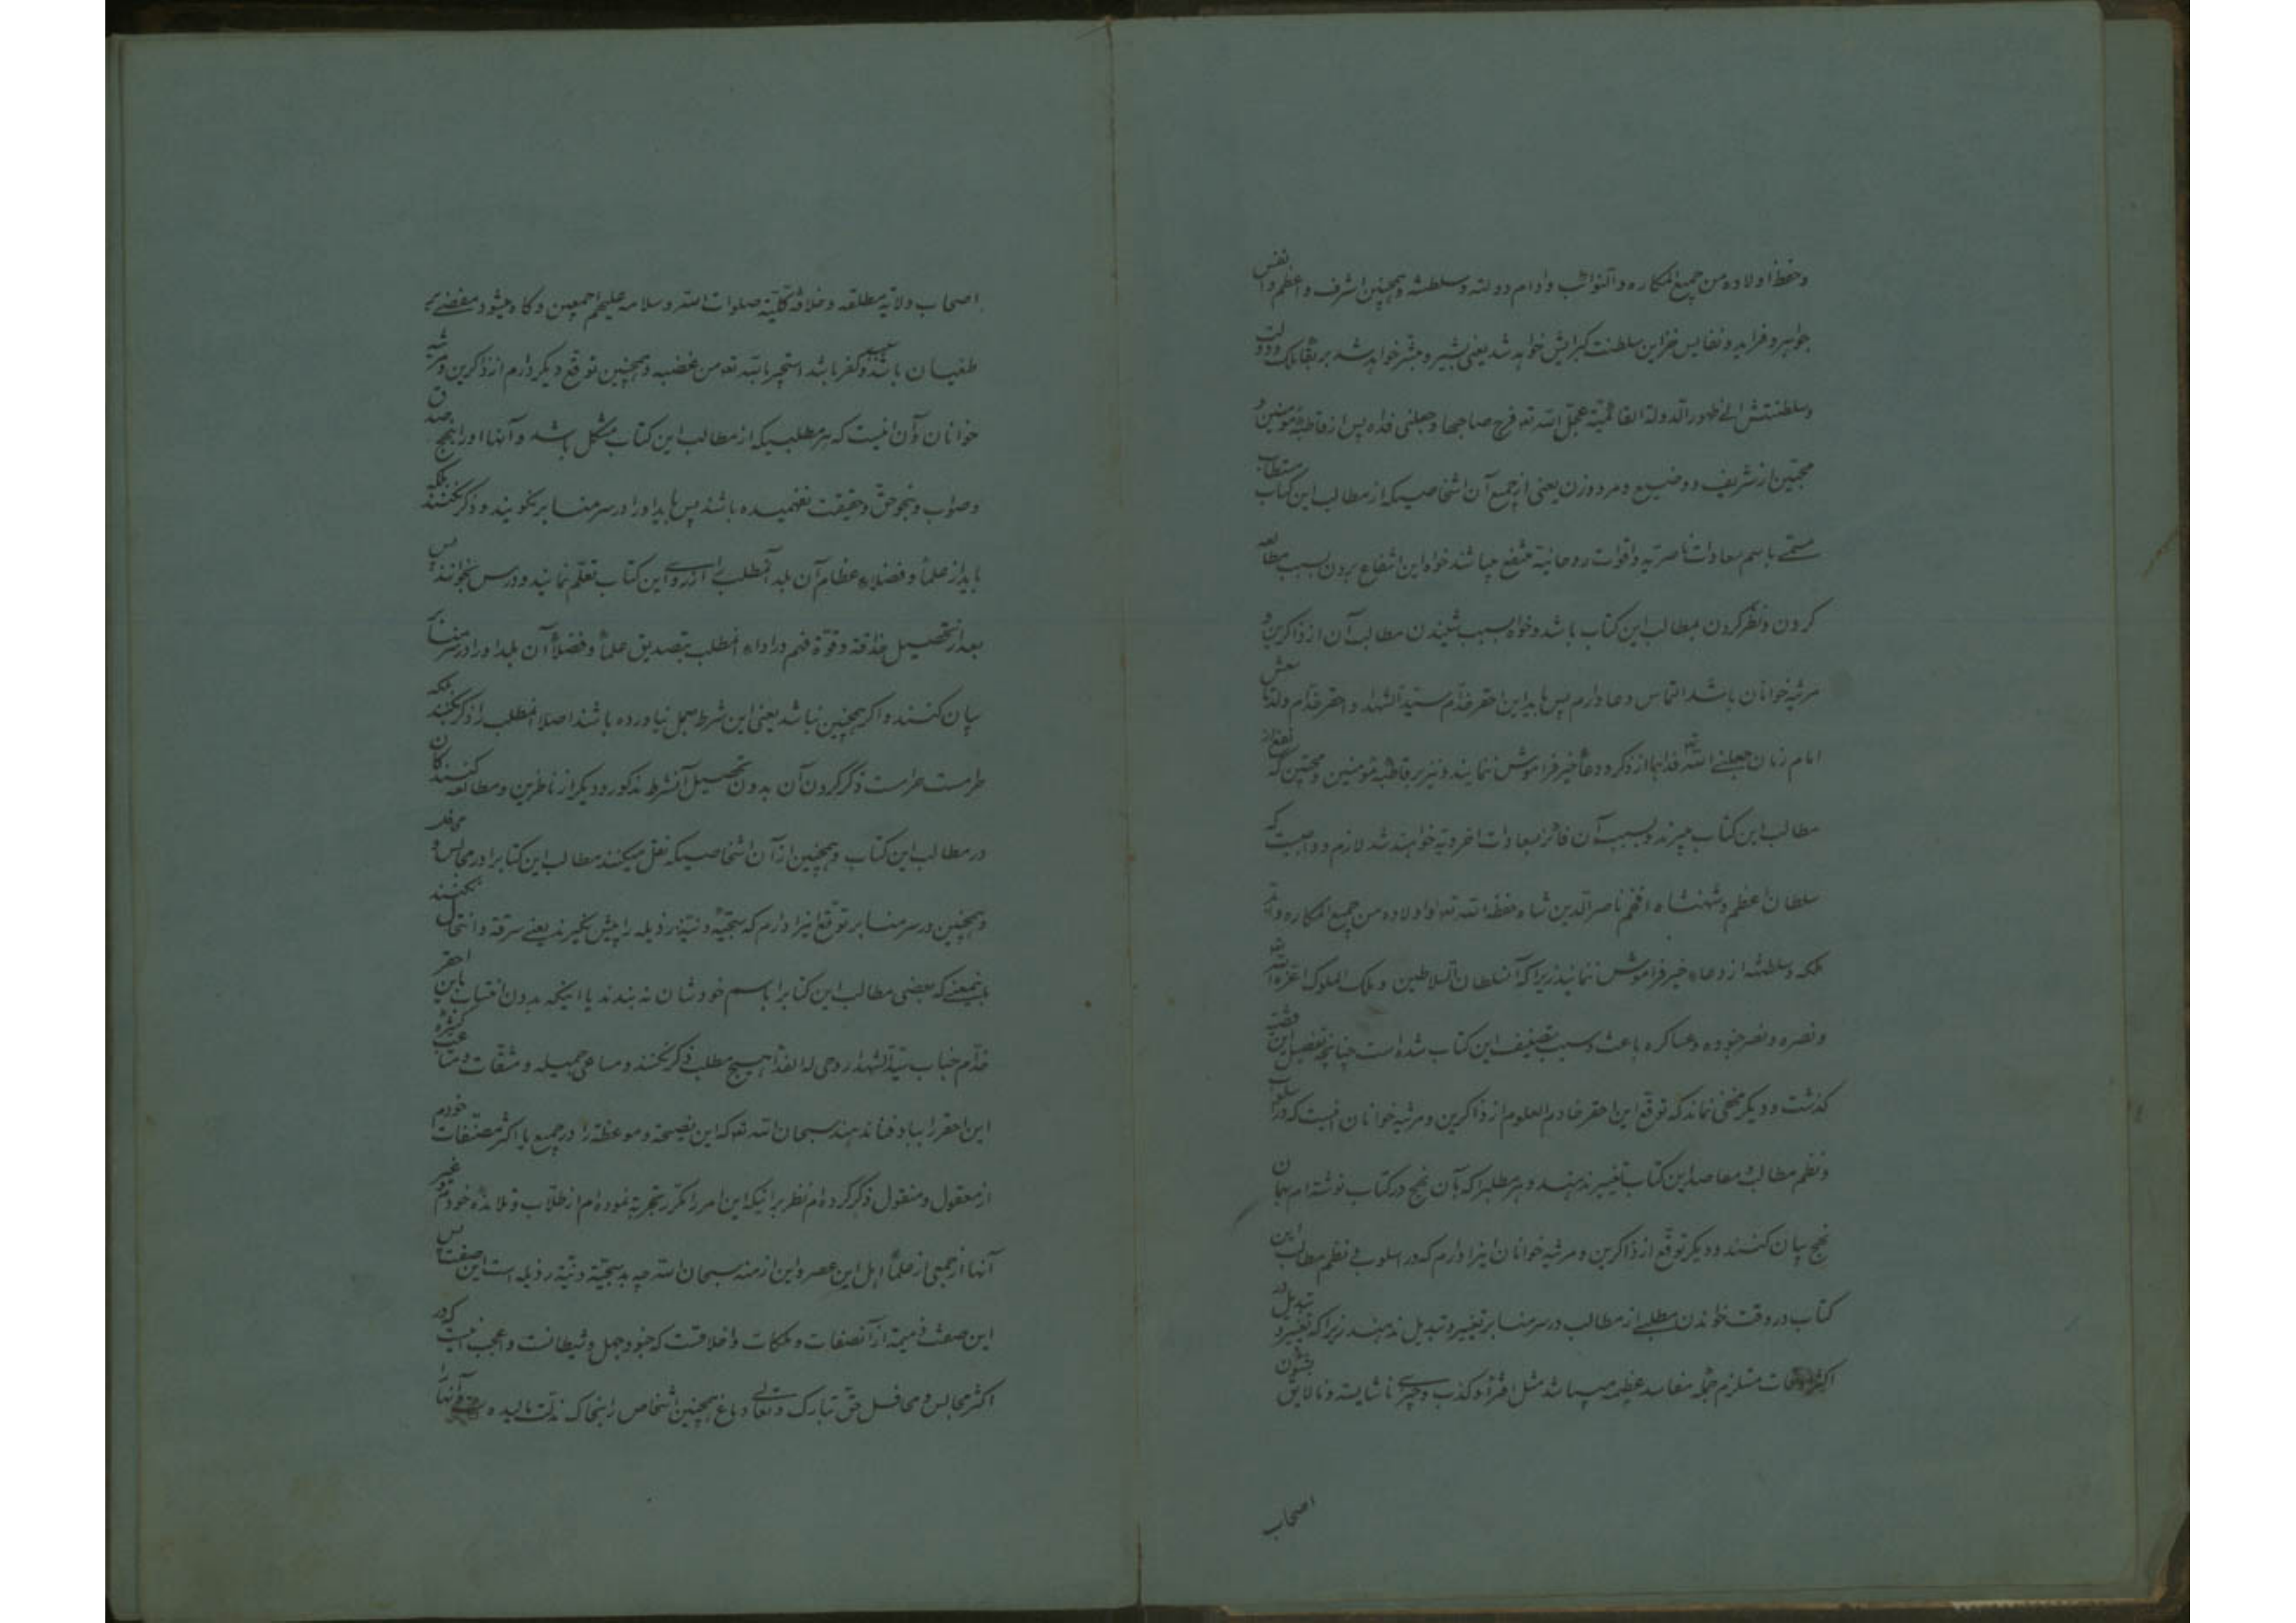 وحفظ اولاده من جمیع المکاره والنوائب وادام دولته وسلطنته وهمچنین اشرف واعظم وانفس
جواهر و فراید و نفایس خزاین سلطنت کبرایش خواهد شد یعنی بشیر و مبشر خواهد شد بر بقا ملک ودولت
وسلطنتش الی ظهور الدولة القائمیّة عجّل الله تع فرج صاحبها وجعلنی فداه پس از قاطبهٔ مؤمنین و
محبّین از شریف و وضیع و مرد و زن یعنی از جمیع آن اشخاصیکه از مطالب این کتاب مستطاب
مسمّی باسم سعادات ناصریه واقوات روحانیة منتفع میباشند خواه این انتفاع بردن بسبب مطالعه
کردن ونظر کردن بمطالب این کتاب باشد وخواه بسبب شنیدن مطالب آن از ذاکرین و
مرثیه خوانان باشد التماس دعا دارم پس باید این احقر خدّام سیّد الشهداء واحقر خدّام ولدش
امام زمان جعلنی الله تع فداهما از ذکر و دعاء خیر فراموش ننمایند ونیز بر قاطبهٔ مؤمنین ومحبّین که نفع از
مطالب این کتاب میبرند وبسبب آن فائز بسعادات اخرویّه خواهند شد لازم و واجبست که
سلطان اعظم وشهنشاه افخم ناصر الدین شاه حفظه الله تع واولاده من جمیع المکاره وابّد
ملکه وسلطنته از دعاء خیر فراموش ننمایند زیرا که آنسلطان السلاطین و ملک الملوک اعزه الله تع
ونصره ونصر جنوده وعساکره باعث وسبب تصنیف این کتاب شده است چنانچه تفصیل این
کذشت ودیکر مخفی نماند که توقع این احقر خادم العلوم از ذاکرین ومرثیه خوانان اینست که در اسلوب
ونظم مطالب این کتاب تغییر ندهند وهر مطلبرا که بآن نهج در کتاب نوشته ام بهمان
نهج بیان کنند ودیکر توقع از ذاکرین ومرثیه خوانان اینرا دارم که در اسلوب ونظم مطالب این
کتاب در وقت خواندن مطلبی از مطالب در سر منابر تغییر وتبدیل ندهند زیرا که تغییر و تبدیل در
اکثر اوقات مستلزم جمله مفاسد عظیمه میباشد مثل افترا وکذب وچیزی ناشایسته ونالایق بشئون
اصحاب
اصحاب ولایة مطلقه وخلافة کلیّة صلوات الله وسلامه علیهم اجمعین وکاه میشود مفضی بر
طغیان باشد وکفر باشد استجیر بالله تع من غضبه وهمچنین توقع دیکر دارم از ذاکرین ومرثیه
خوانان وآن اینست که هر مطلبیکه از مطالب این کتاب مشکل باشد وآنها او را بنهج صدق
وصواب وبنحو حقّ وحقیقت نفهمیده باشند پس باید او را در سر منابر نکویند وذکر نکنند بلکه
باید از علماء وفضلاء عظام آن بلد آنمطلب را از روی این کتاب تعلّم نمایند ودرس بخوانند پس
بعد از تحصیل حذاقة وقوّة فهم در اداء آنمطلب بتصدیق علماء وفضلاء آن بلد او را در سر منابر
بیان کنند واکر همچنین نباشد یعنی این شرط بعمل نیاورده باشند اصلا آنمطلب را ذکر نکنند بلکه
حرامست حرامست ذکر کردن آن بدون تحصیل آنشرط مذکور ودیکر از ناظرین ومطالعه کنندکان
در مطالب این کتاب وهمچنین از آن اشخاصیکه نقل میکنند مطالب این کتابرا در مجالس و محافل
وهمچنین در سر منابر توقع اینرا دارم که سجیّهٔ دنیّهٔ رذیله را پیش نکیرند یعنی سرقة وانتحال نکنند
باینمعنی که بعضی مطالب این کتابرا باسم خودشان نه بندند یا اینکه بدون انتساب باین احقر
خدّام جناب سیّد الشهداء روحی له الفداء هیچ مطلب ذکر نکنند ومساعی جمیله ومشقّات ومتاعب کثیرهٔ
این احقر را بباد فنا ندهند سبحان الله تع که این نصیحة وموعظة را در جمیع یا اکثر مصنّفات خودم
از معقول ومنقول ذکر کرده ام نظر بر اینکه این امر را مکرّر تجربة نموده ام از طلّاب وتلامذهٔ خودم وغیر
آنها از جمعی از علماء اهل این عصر واین ازمنه سبحان الله چه بد سجیّة دنیّة رذیله است این صفت پس
این صفت ذمیمة از آنصفات وملکات واخلاقست که جنود جهل وشیطانست وعجب اینست که در
اکثر مجالس ومحافل حقّ تبارک وتعالی دماغ همچنین اشخاص را بخاک مذلّت مالیده